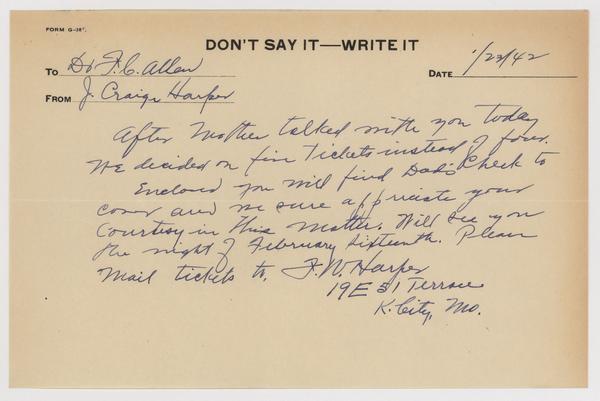 FORM G-16
DON'T SAY IT—WRITE IT
To Dr. F. C. Allen
DATE 1/23/42
FROM J. Craige Harper
After Mother talked with you today
we decided on five tickets instead of four.
Enclosed you will find Dad's check to
cover and we sure appriciate your
courtesy in this matter. Will see you
the night of February sixteenth. Please
mail tickets to, F. W. Harper
19 E 51 Terrace
K. City, Mo.